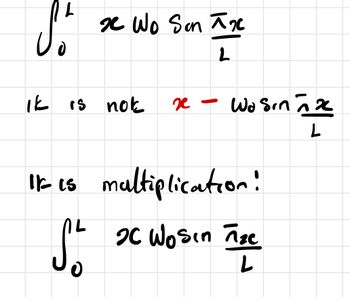 ∫₀ᴸ x W₀ Sin πx/L
it is not x - W₀ Sin πx/L
It is multiplication!
∫₀ᴸ x W₀ Sin πx/L